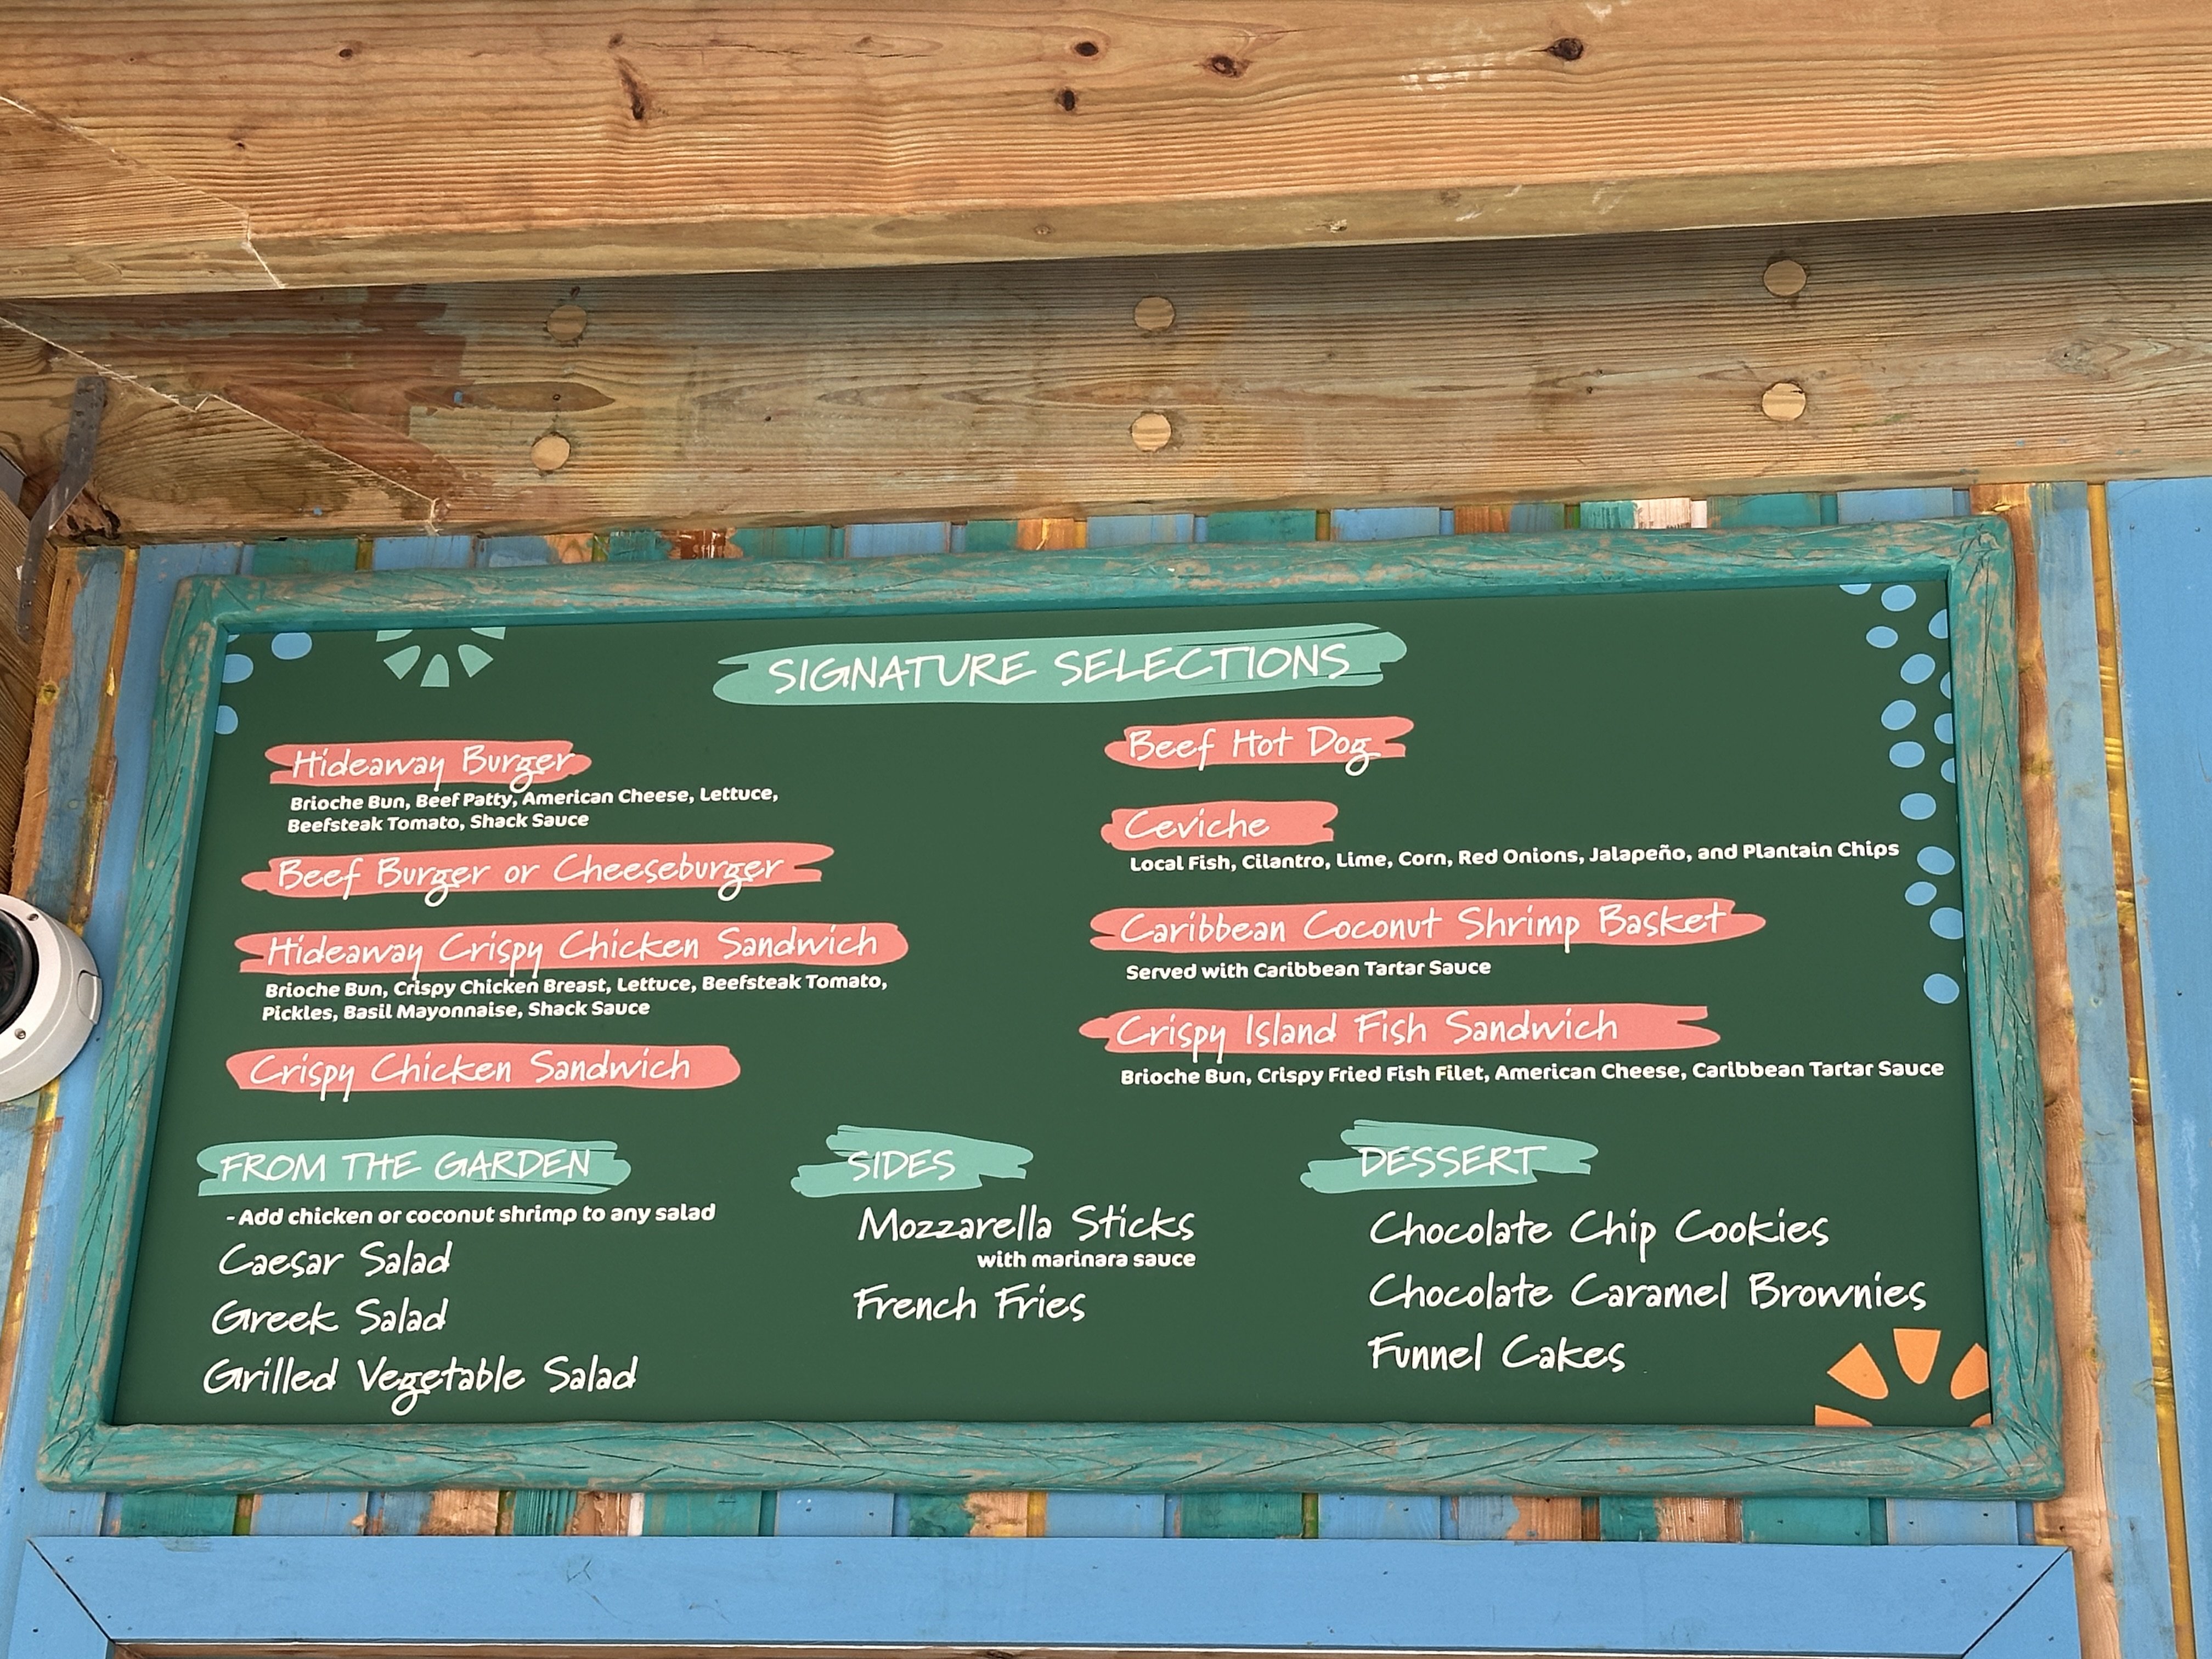 SIGNATURE SELECTIONS
Hideaway Burger
Brioche Bun, Beef Patty, American Cheese, Lettuce,
Beefsteak Tomato, Shack Sauce
Beef Burger or Cheeseburger
Hideaway Crispy Chicken Sandwich
Brioche Bun, Crispy Chicken Breast, Lettuce, Beefsteak Tomato,
Pickles, Basil Mayonnaise, Shack Sauce
Crispy Chicken Sandwich
Beef Hot Dog
Ceviche
Local Fish, Cilantro, Lime, Corn, Red Onions, Jalapeño, and Plantain Chips
Caribbean Coconut Shrimp Basket
Served with Caribbean Tartar Sauce
Crispy Island Fish Sandwich
Brioche Bun, Crispy Fried Fish Filet, American Cheese, Caribbean Tartar Sauce
FROM THE GARDEN
- Add chicken or coconut shrimp to any salad
Caesar Salad
Greek Salad
Grilled Vegetable Salad
SIDES
Mozzarella Sticks
with marinara sauce
French Fries
DESSERT
Chocolate Chip Cookies
Chocolate Caramel Brownies
Funnel Cakes